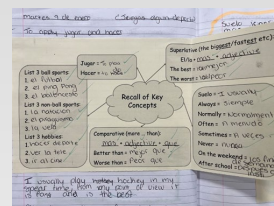 martes 9 de enero
¿Tengas algun deporte?
To apply jugar and hacer
Suelo
Jugar = To play
Hacer = to do
List 3 ball sports:
1. el fútbol
2. el ping pong
3. el baloncesto
List 3 non-ball sports:
1. la natación
2. el piragüismo
3. la vela
List 3 hobbies
1. hacer deporte
2. ver la tele
3. ir al cine
Recall of Key
Concepts
Superlative (the biggest/fastest etc)
El/la + más + adjective
The best =
The worst =
Comparative (more ... than)
más + adjective + que
Better than = mejor que
Worse than = Peor que
Suelo = I usually
Always = siempre
Normally = Normalmente
Often = A menudo
Sometimes = A veces
Never = nunca
On the weekend = los fines
de semana
After school = despues
I usually play hockey in my
spare time, from my point of view it
is easy and is the best